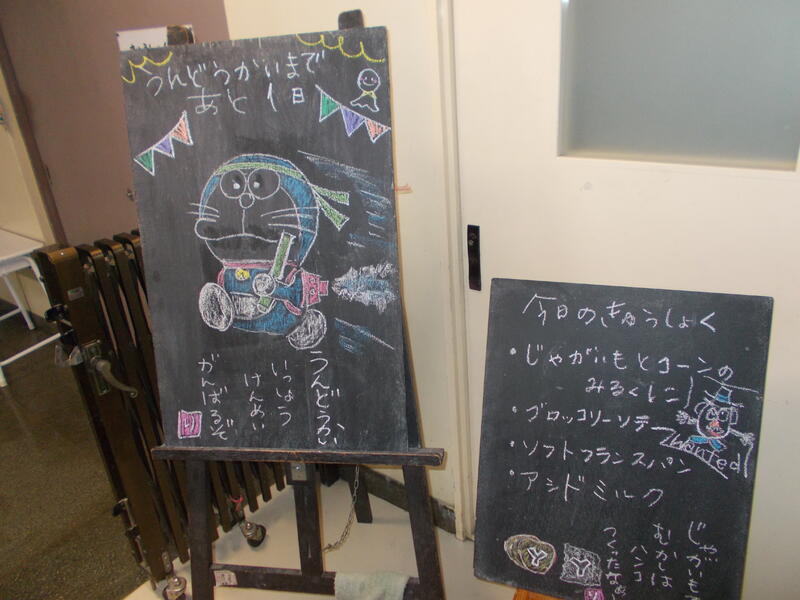 うんどうかいまで
あと1日
うんどうかい
いっしょう
けんめい
がんばるぞ
り
今日のきゅうしょく
・じゃがいもとコーンの
みるくに
・ブロッコリーソテー
・ソフトフランスパン
・アシドミルク
Wanted
じゃがいもで
むかしは
ハンコ
つくったなぁ
り